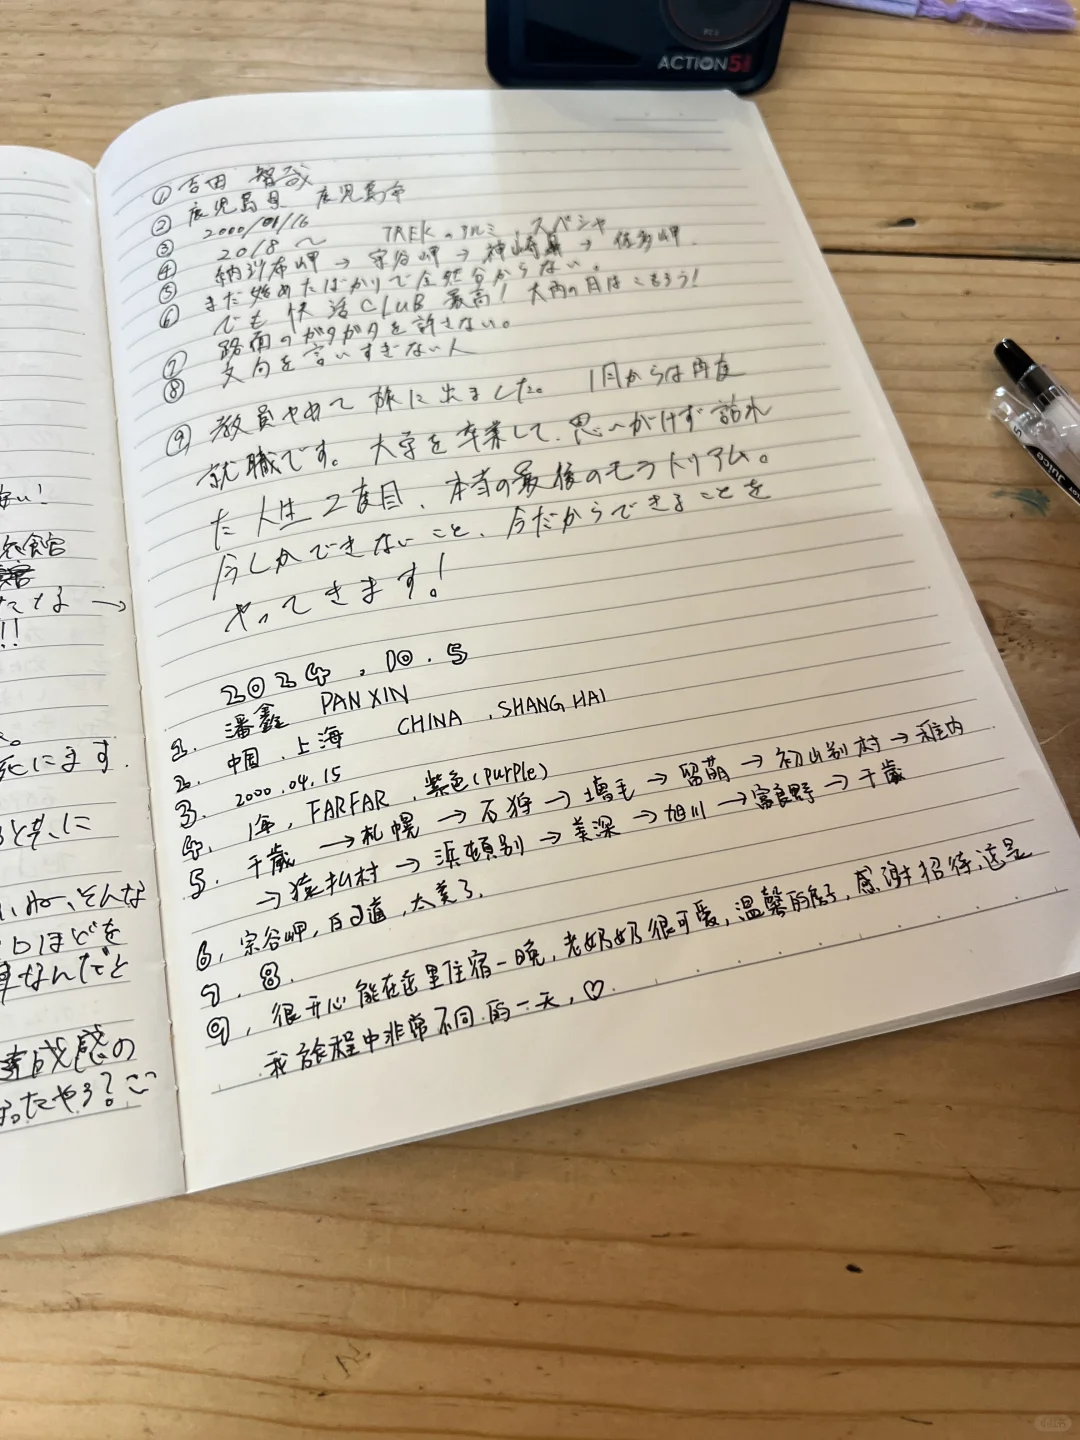 ACTION 5
① 吉田 智哉
② 鹿児島県 鹿児島市
③ 2000/01/16
④ 2018 〜 TREKのアルミ、スペシャ
⑤ 納沙布岬 → 宗谷岬 → 神崎鼻 → 佐多岬.
⑥ まだ始めたばかりで全然分からない。
でも 快活CLUB 最高!
⑦ 路面のガタガタを許さない。
⑧ 文句を言いすぎない人
⑨ 教員やめて 旅に出ました。 1月からは再度
就職です。大学を卒業して、思いがけず訪れ
た 人生2度目、本当の最後のモラトリアム。
今しかできないこと、今だからできることを
やってきます!
2024.10.5
1. 潘鑫 PAN XIN
2. 中国.上海 CHINA .SHANG HAI
3. 2000.04.15
4. 1年, FARFAR .紫色(purple)
5. 千歳 → 札幌 → 石狩 → 增毛 → 留萌 → 初山别村 → 稚内
→ 猿払村 → 浜頓别 → 美深 → 旭川 → 富良野 → 千歳
6. 宗谷岬,白の道,太美了.
7. 8.
9. 很开心能在这里住宿一晚,老奶奶很可爱,温馨的房子,感谢招待,这是
我旅程中非常不同的一天,♡
い!
食官
たてる →
!!
死にます.
と共に
いね、そんな
ロほどを
なんだと
達成感の
たやろ?
JUICE